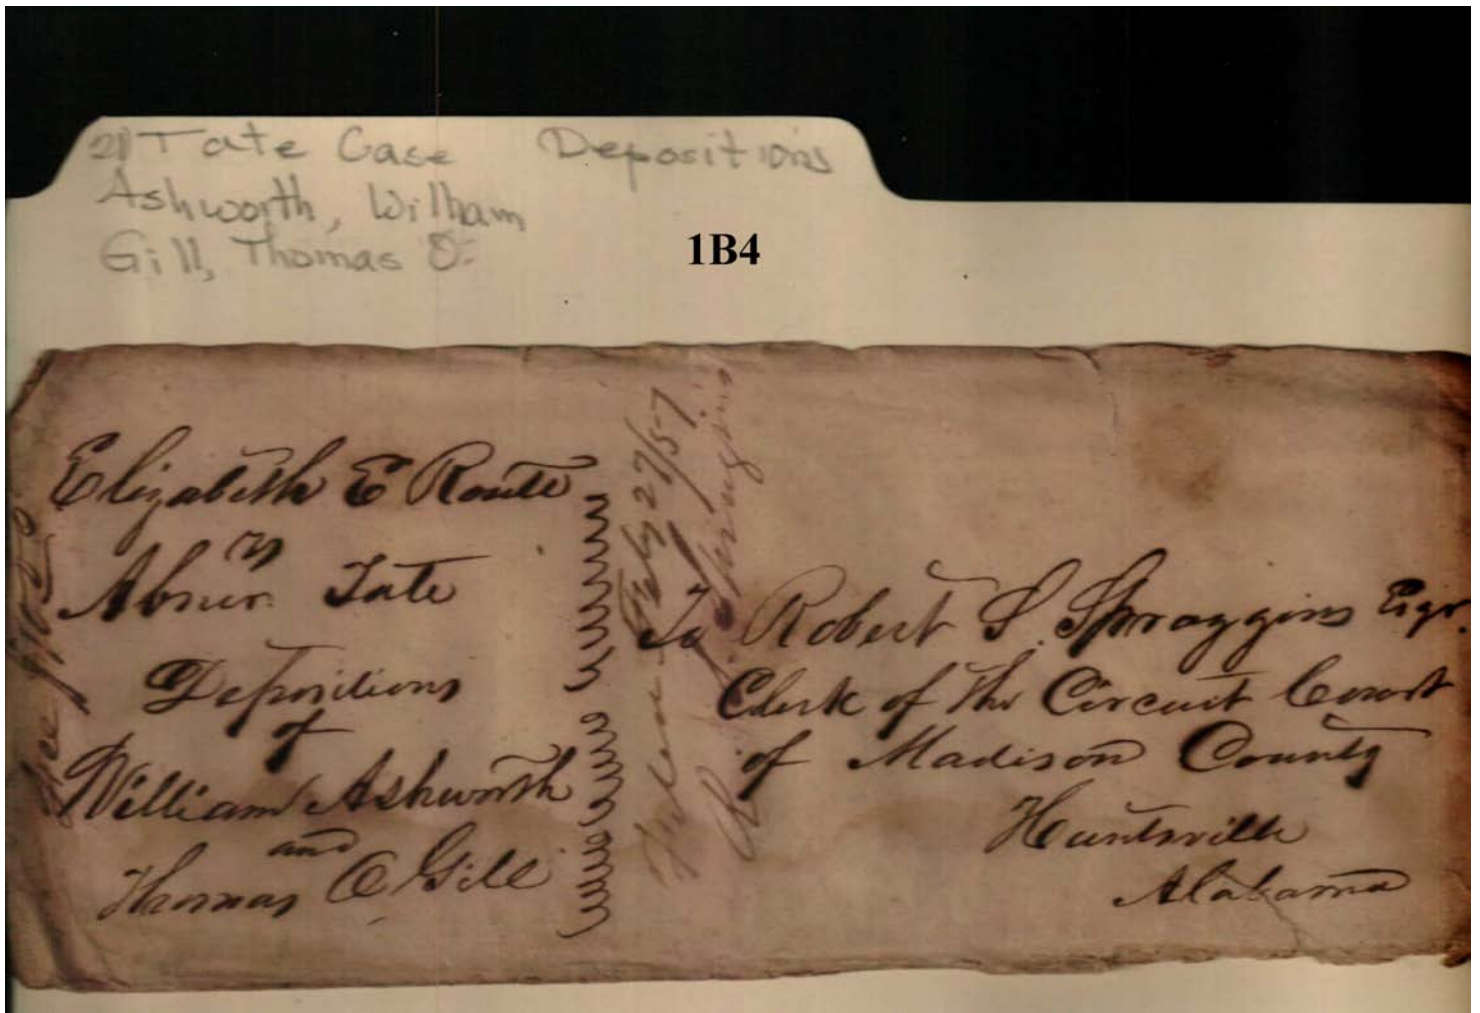 21 Tate Case Depositions
Ashworth, William
Gill, Thomas O.
1B4
Elizabeth E Routt
vs
Abner Tate
Depositions
of
William Ashworth
and
Thomas O Gill
Feby 27/57
To Robert S. Spraggins Esqr.
Clerk of the Circuit Court
of Madison County
Huntsville
Alabama